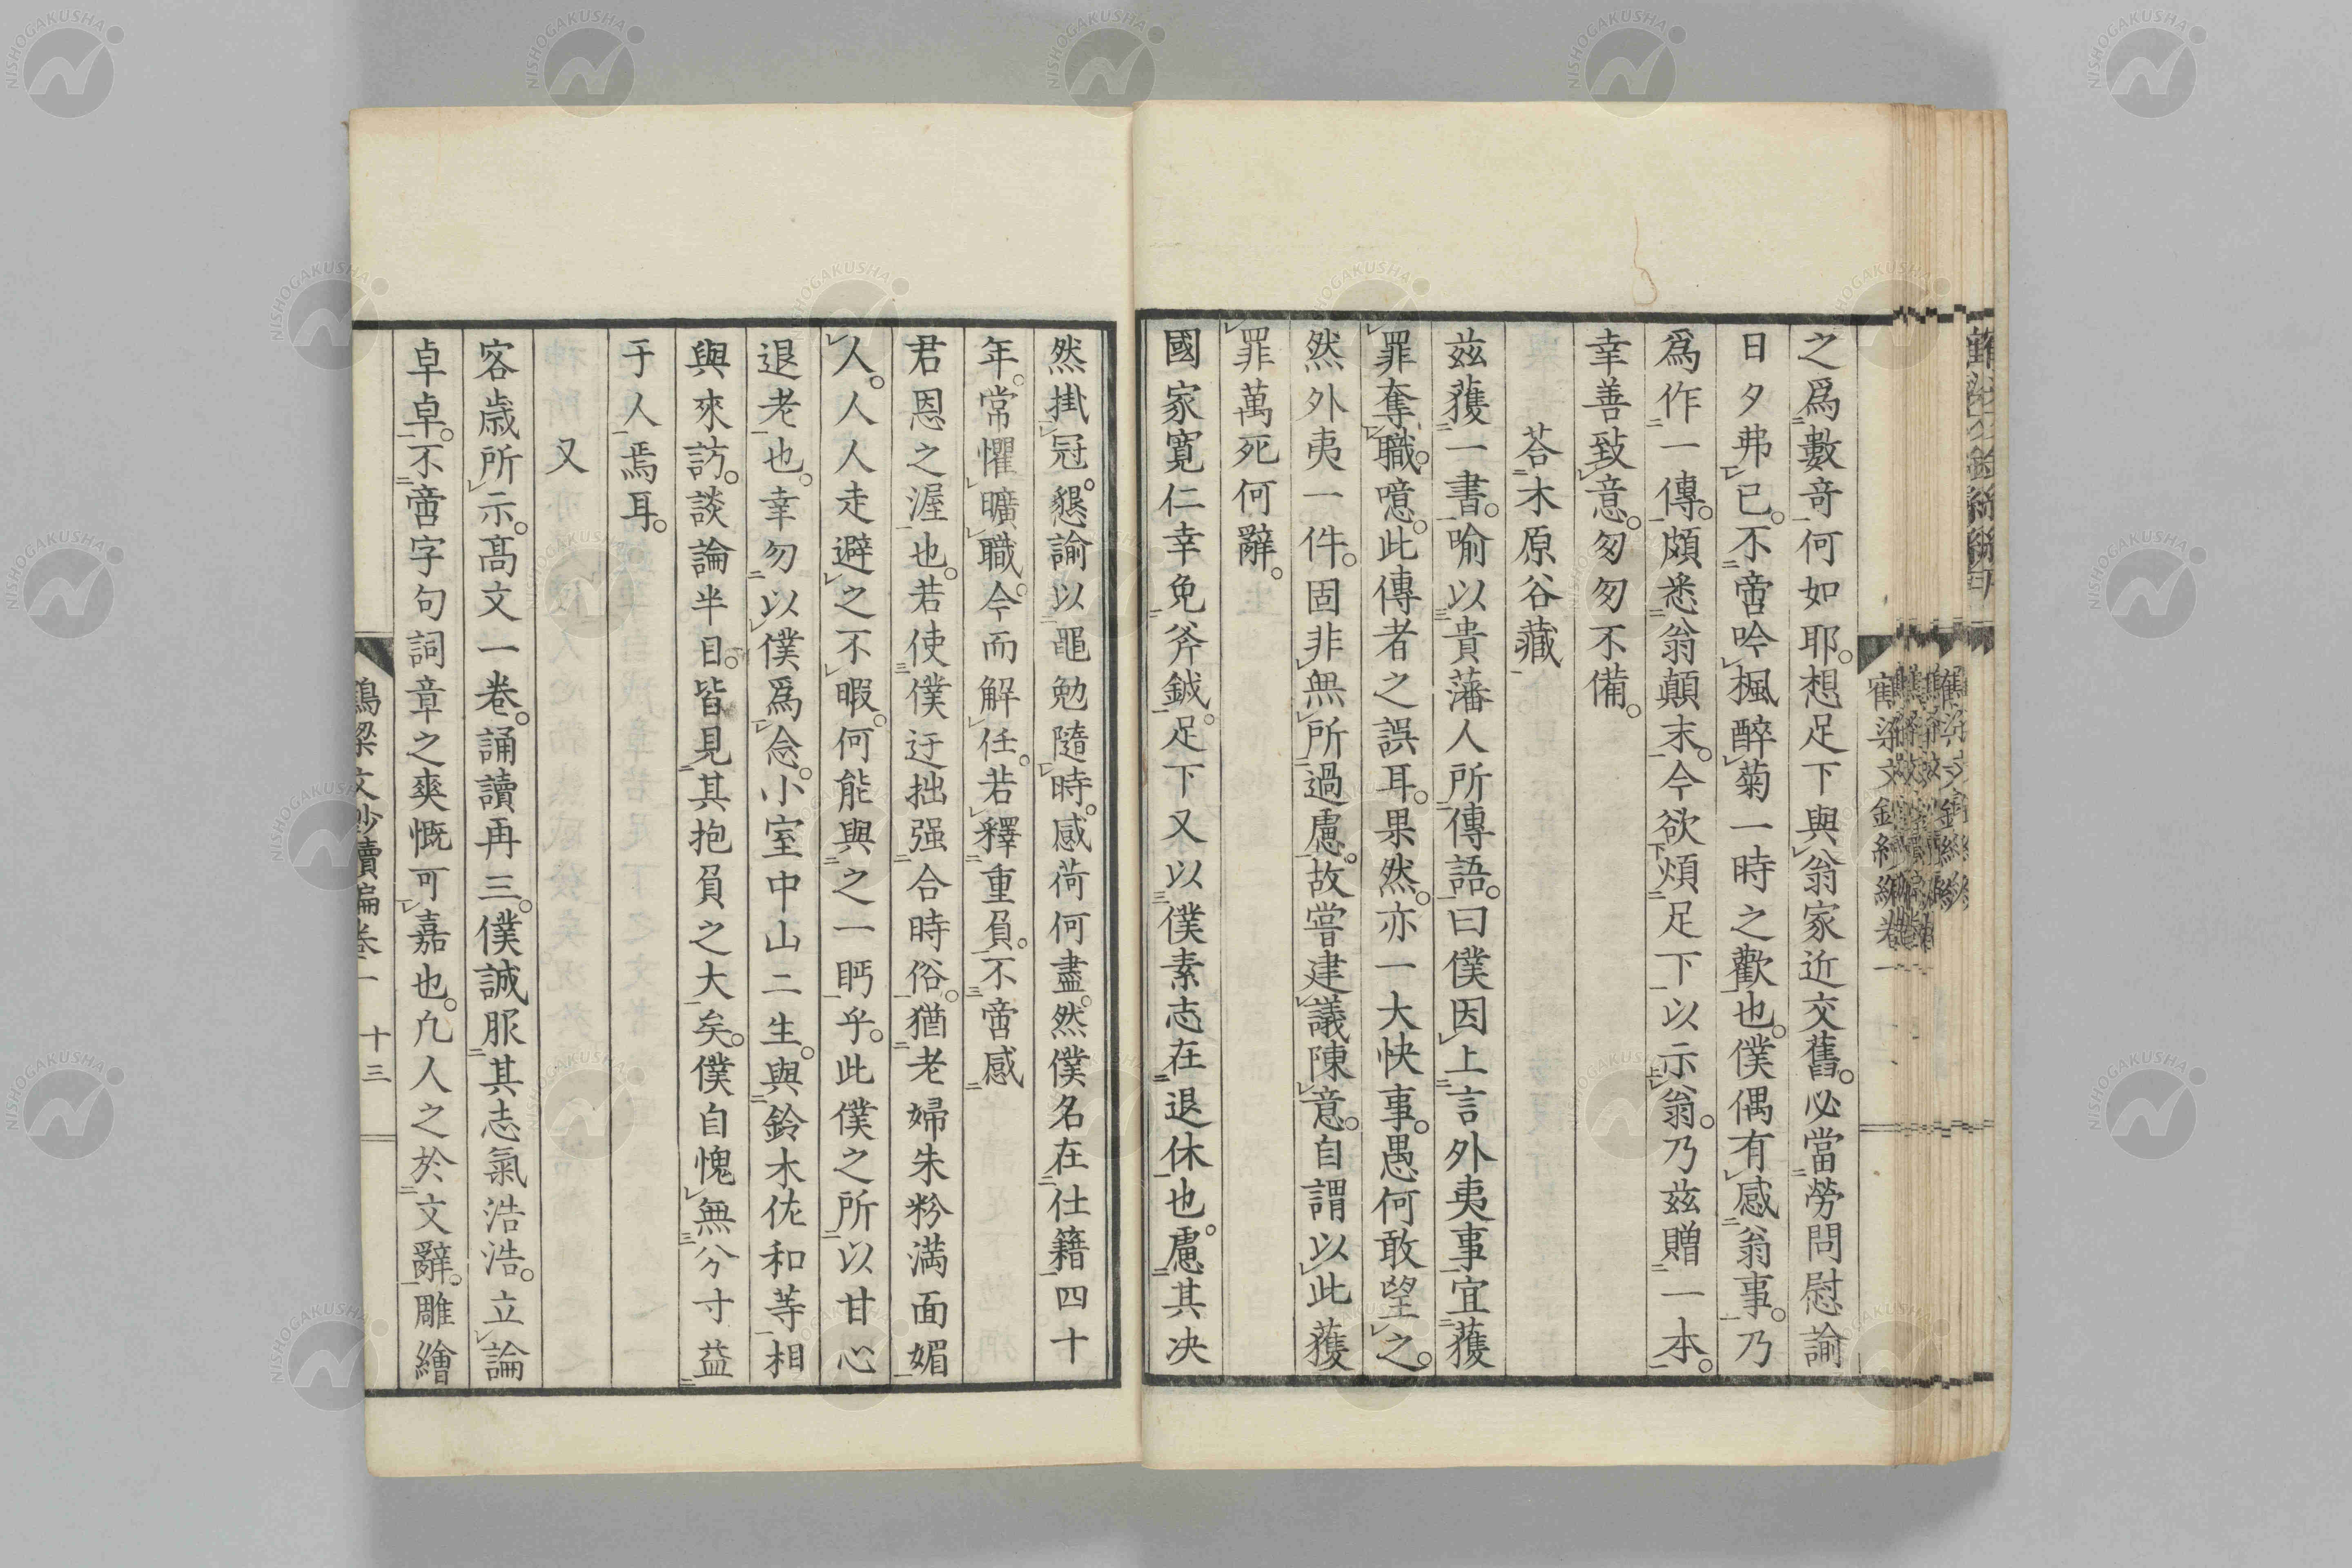 之爲數奇何如耶。想足下與翁家近交舊。必當勞問慰諭
日夕弗已。不啻吟楓醉菊一時之歡也。僕偶有感翁事。乃
爲作一傳。頗悉翁顛末。今欲煩足下以示翁。乃茲贈一本。
幸善致意。匆匆不備。
荅木原谷藏
茲蒦一書。喻以貴藩人所傳語。曰僕因上言外夷事宜蒦
罪奪職。噫。此傳者之誤耳。果然。亦一大快事。愚何敢望之。
然外夷一件。固非無所過慮。故嘗建議陳意。自謂以此蒦
罪萬死何辭。
國家寛仁幸免斧鉞。足下又以僕素志在退休也。慮其决
然掛冠。懇諭以黽勉隨時。感荷何盡。然僕名在仕籍四十
年。常懼曠職。今而解任。若釋重負。不啻感
君恩之渥也。若使僕迂拙强合時俗。猶老婦朱粉滿面媚
人。人人走避之不暇。何能與之一眄乎。此僕之所以甘心
退老也。幸勿以僕爲念。小室中山二生。與鈴木佐和等相
與來訪。談論半日。皆見其抱負之大矣。僕自愧無分寸益
于人焉耳。
又
客歳所示。高文一卷。誦讀再三。僕誠服其志氣浩浩。立論
卓卓。不啻字句詞章之爽慨可嘉也。凡人之於文辭。雕繪
鶴梁文鈔續編卷一 十三
NISHOGAKUSHA